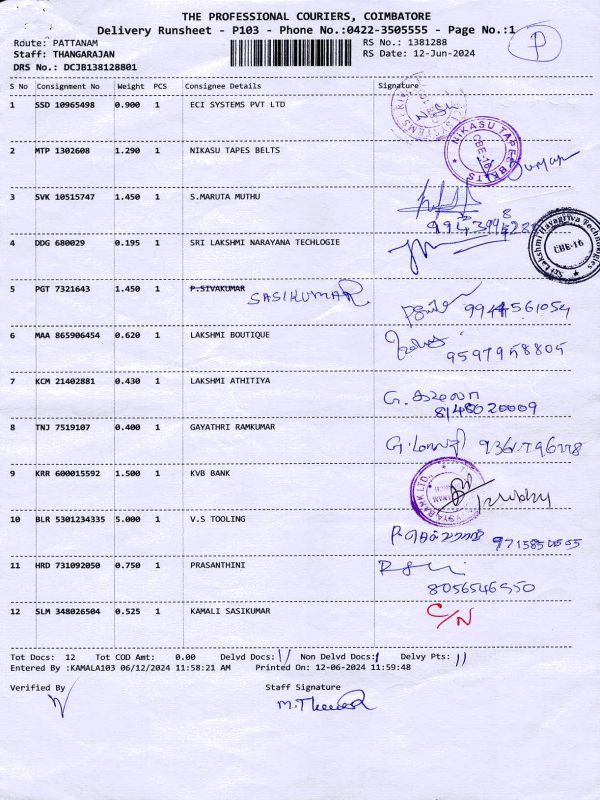 THE PROFESSIONAL COURIERS, COIMBATORE
Delivery Runsheet - P103 - Phone No.:0422-3505555 - Page No.:1
P
Route: PATTANAM
RS No.: 1381288
Staff: THANGARAJAN
RS Date: 12-Jun-2024
DRS No.: DCJB138128801
S No Consignment No Weight PCS Consignee Details Signature
1 SSD 10965498 0.900 1 ECI SYSTEMS PVT LTD
2 MTP 1302608 1.290 1 NIKASU TAPES BELTS
NIKASU TAPES BELTS CBE-16
3 SVK 10515747 1.450 1 S.MARUTA MUTHU
4 DDG 680029 0.195 1 SRI LAKSHMI NARAYANA TECHLOGIE
Sri Lakshmi Hayagriva Technologies CBE-16
5 PGT 7321643 1.450 1 P.SIVAKUMAR SASIKUMAR 9944561054
6 MAA 865906454 0.620 1 LAKSHMI BOUTIQUE 9597958805
7 KCM 21402881 0.430 1 LAKSHMI ATHITIYA
8148020009
8 TNJ 7519107 0.400 1 GAYATHRI RAMKUMAR
9 KRR 600015592 1.500 1 KVB BANK
10 BLR 5301234335 5.000 1 V.S TOOLING
11 HRD 731092050 0.750 1 PRASANTHINI
8056546550
12 SLM 348026504 0.525 1 KAMALI SASIKUMAR C/N
Tot Docs: 12 Tot COD Amt: 0.00 Delvd Docs: 11 Non Delvd Docs: 1 Delvy Pts: 11
Entered By :KAMALA103 06/12/2024 11:58:21 AM Printed On: 12-06-2024 11:59:48
Verified By Staff Signature